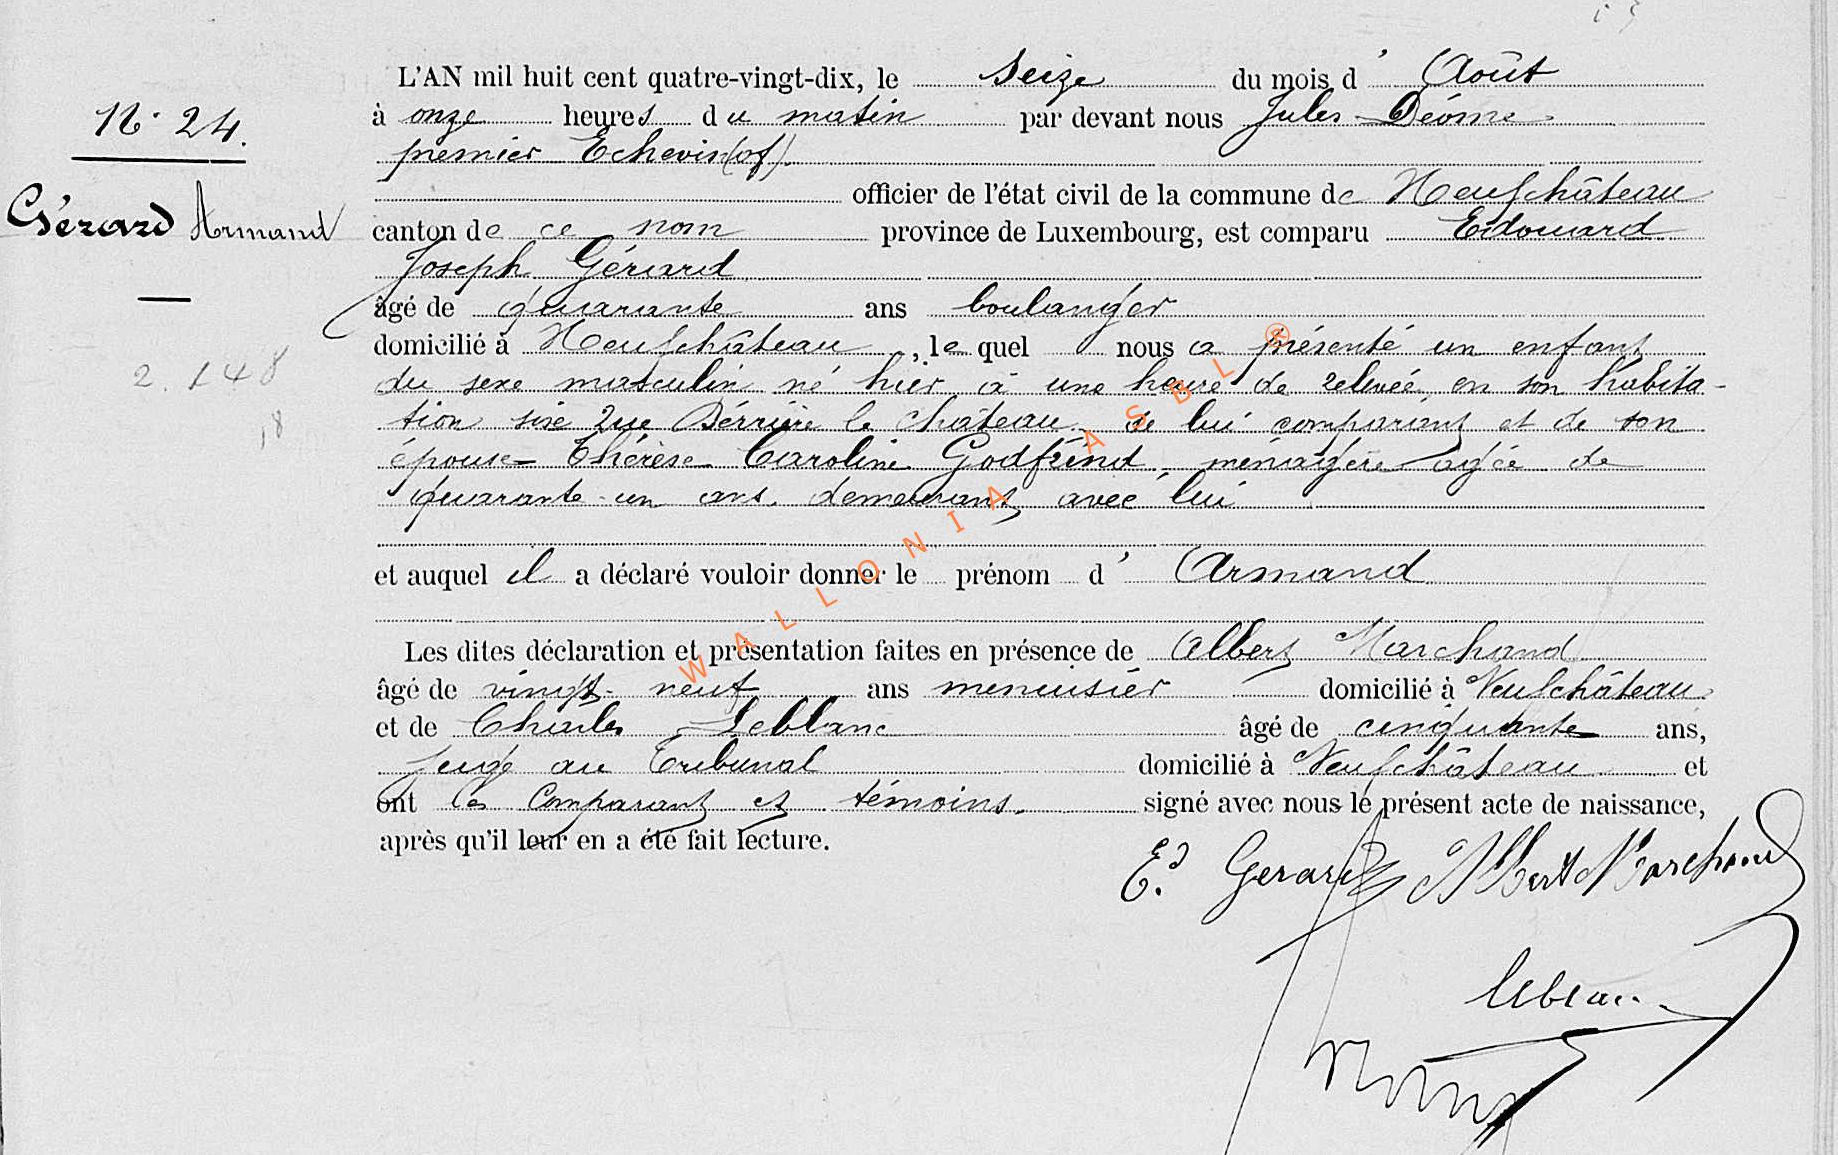 L'AN mil huit cent quatre-vingt-dix, le seize du mois d' Août
N° 24.
à onze heures du matin par devant nous Jules Déôme
premier Echevin (of).
officier de l'état civil de la commune de Neufchâteau
Gérard Armand
canton de ce nom province de Luxembourg, est comparu Edouard
Joseph Gérard
âgé de quarante ans boulanger
domicilié à Neufchâteau, lequel nous a présenté un enfant
2. 148
du sexe masculin né hier à une heure de relevée en son habita-
tion sise rue Dérrière le Château. de lui comparant et de son
18
épouse Thérèse Caroline Godfrind, ménagère âgée de
quarante-un ans. demeurant avec lui
et auquel il a déclaré vouloir donner le prénom d' Armand
Les dites déclaration et présentation faites en présence de Albert Marchand
âgé de vingt-neuf ans menuisier domicilié à Neufchâteau
et de Charles Leblanc âgé de cinquante ans,
juge au Tribunal domicilié à Neufchâteau et
ont les Comparant et témoins. signé avec nous le présent acte de naissance,
après qu'il leur en a été fait lecture.
Ed. Gerard Albert Marchand
WALLONIA ASBL ®